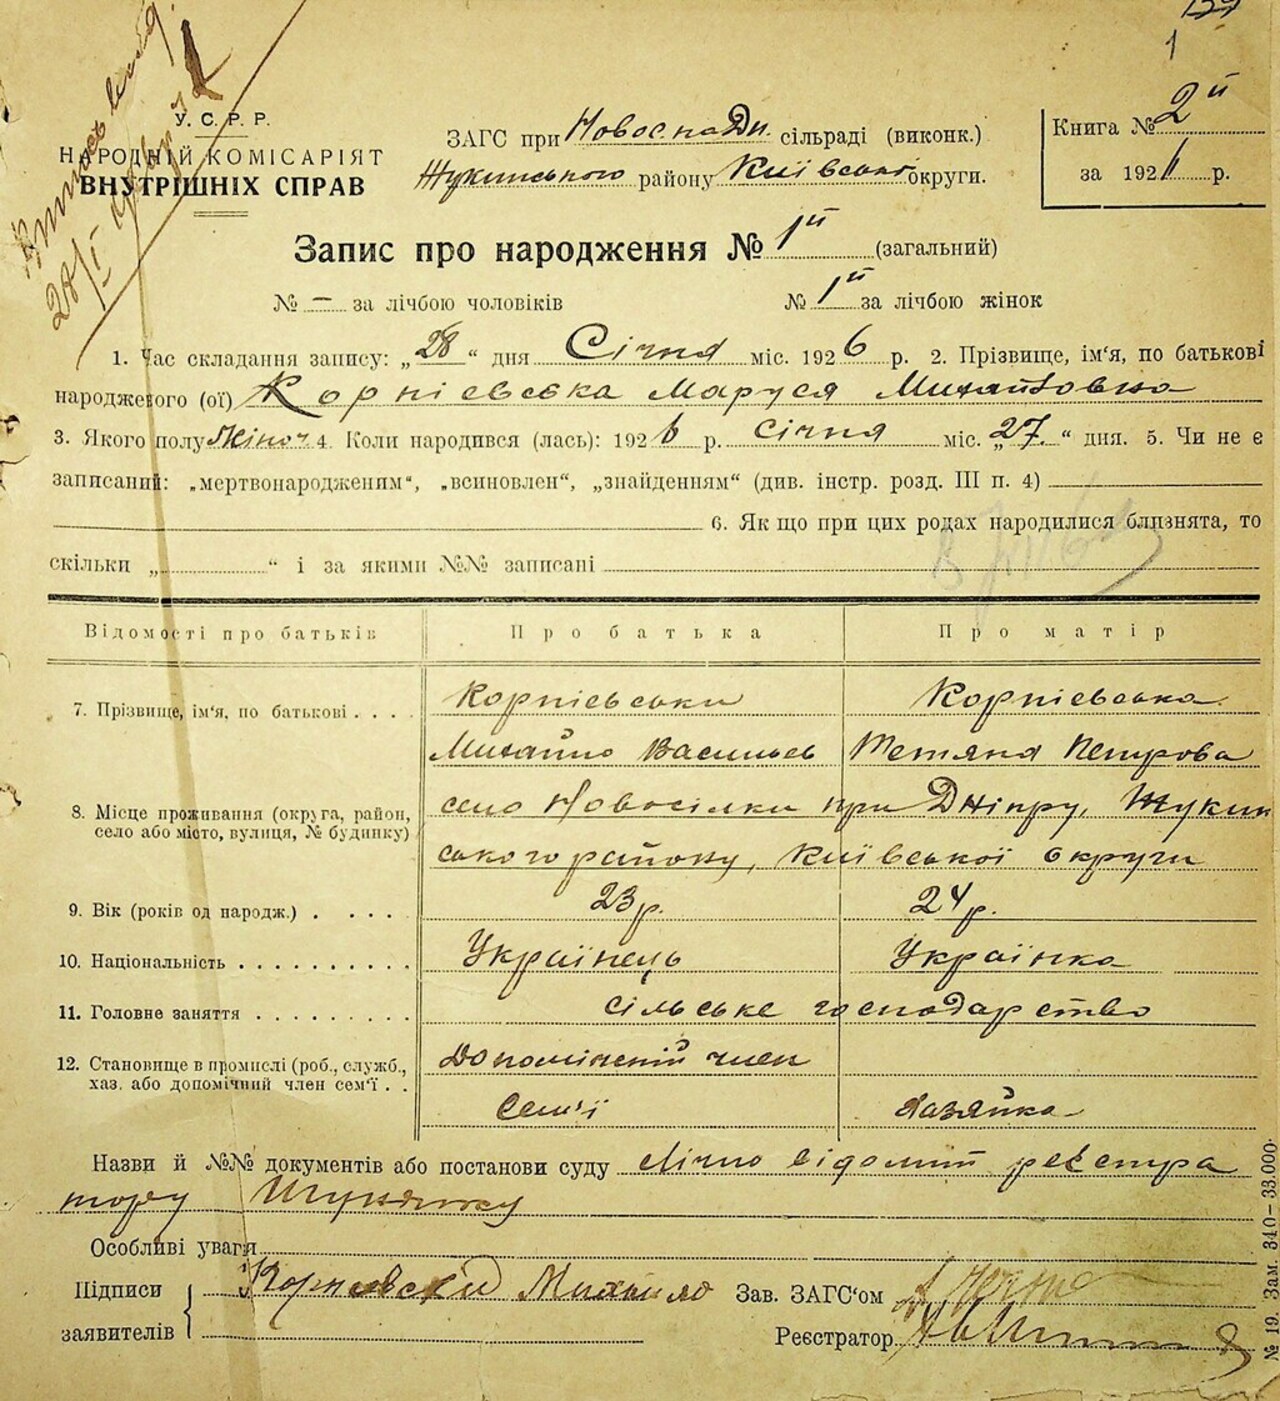 1
У. С. Р. Р.
НАРОДНІЙ КОМІСАРІЯТ
ВНУТРІШНІХ СПРАВ
ЗАГС при сільраді (виконк.)
Жукинського району Київської округи.
Книга № 2й
за 1926 р.
Запис про народження № 1й (загальний)
№ — за лічбою чоловіків № 1й за лічбою жінок
1. Час складання запису: „28“ дня Січня міс. 1926 р. 2. Прізвище, ім‘я, по батькові
народжевого (ої) Корпієвська Маруся Михайловна
3. Якого полу Жіноч 4. Коли народився (лась): 1926 р. січня міс. „27.“ дня. 5. Чи не є
записаний: „мертвонародженим“, „всиновлен“, „знайденням“ (див. інстр. розд. III п. 4)
6. Як що при цих родах народилися близнята, то
скільки „ “ і за якими №№ записані
Відомості про батьків Про батька Про матір
7. Прізвище, ім‘я, по батькові . . . . Корпієвськи Корпієвська
Михайло Васильєв Тетяна Петрова
8. Місце проживання (округа, район, село Новосілки при Дніпру, Жукин
село або місто, вулиця, № будинку) ського району, Київської округи
9. Вік (років од народж.) . . . . . 23р. 24р.
10. Національність . . . . . . . . . . Українець Українка
11. Головне заняття . . . . . . . . . сільське господарство
12. Становище в промислі (роб., служб., член
хаз. або допомічний член сем‘ї . . Сем'ї Хазяйка
Назви й №№ документів або постанови суду Лічно відомий реєстра
тору
Особливі уваги
Підписи Михайло Зав. ЗАГС‘ом
заявителів Реєстратор
№ 19. Зам. 340—33.000.